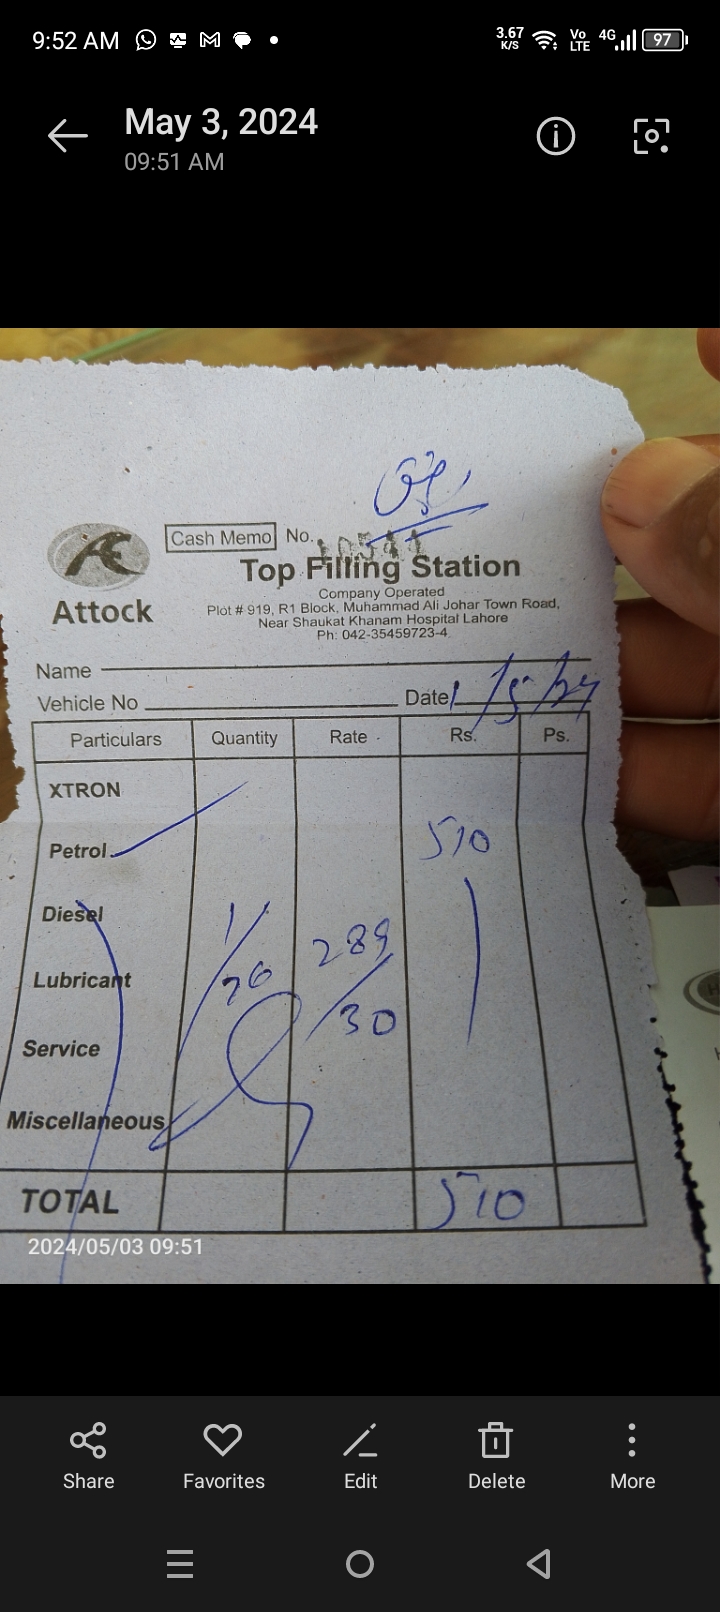 9:52 AM 3.67 K/S Vo LTE 4G 97
May 3, 2024
09:51 AM
Cash Memo No.
Top Filling Station
Attock
Company Operated
Plot # 919, R1 Block, Muhammad Ali Johar Town Road,
Near Shaukat Khanam Hospital Lahore
Ph: 042-35459723-4
Name
Vehicle No Date 1/5/24
Particulars Quantity Rate Rs. Ps.
XTRON
Petrol 510
Diesel
1/76 289/30
Lubricant
Service
Miscellaneous
TOTAL 510
2024/05/03 09:51
Share Favorites Edit Delete More